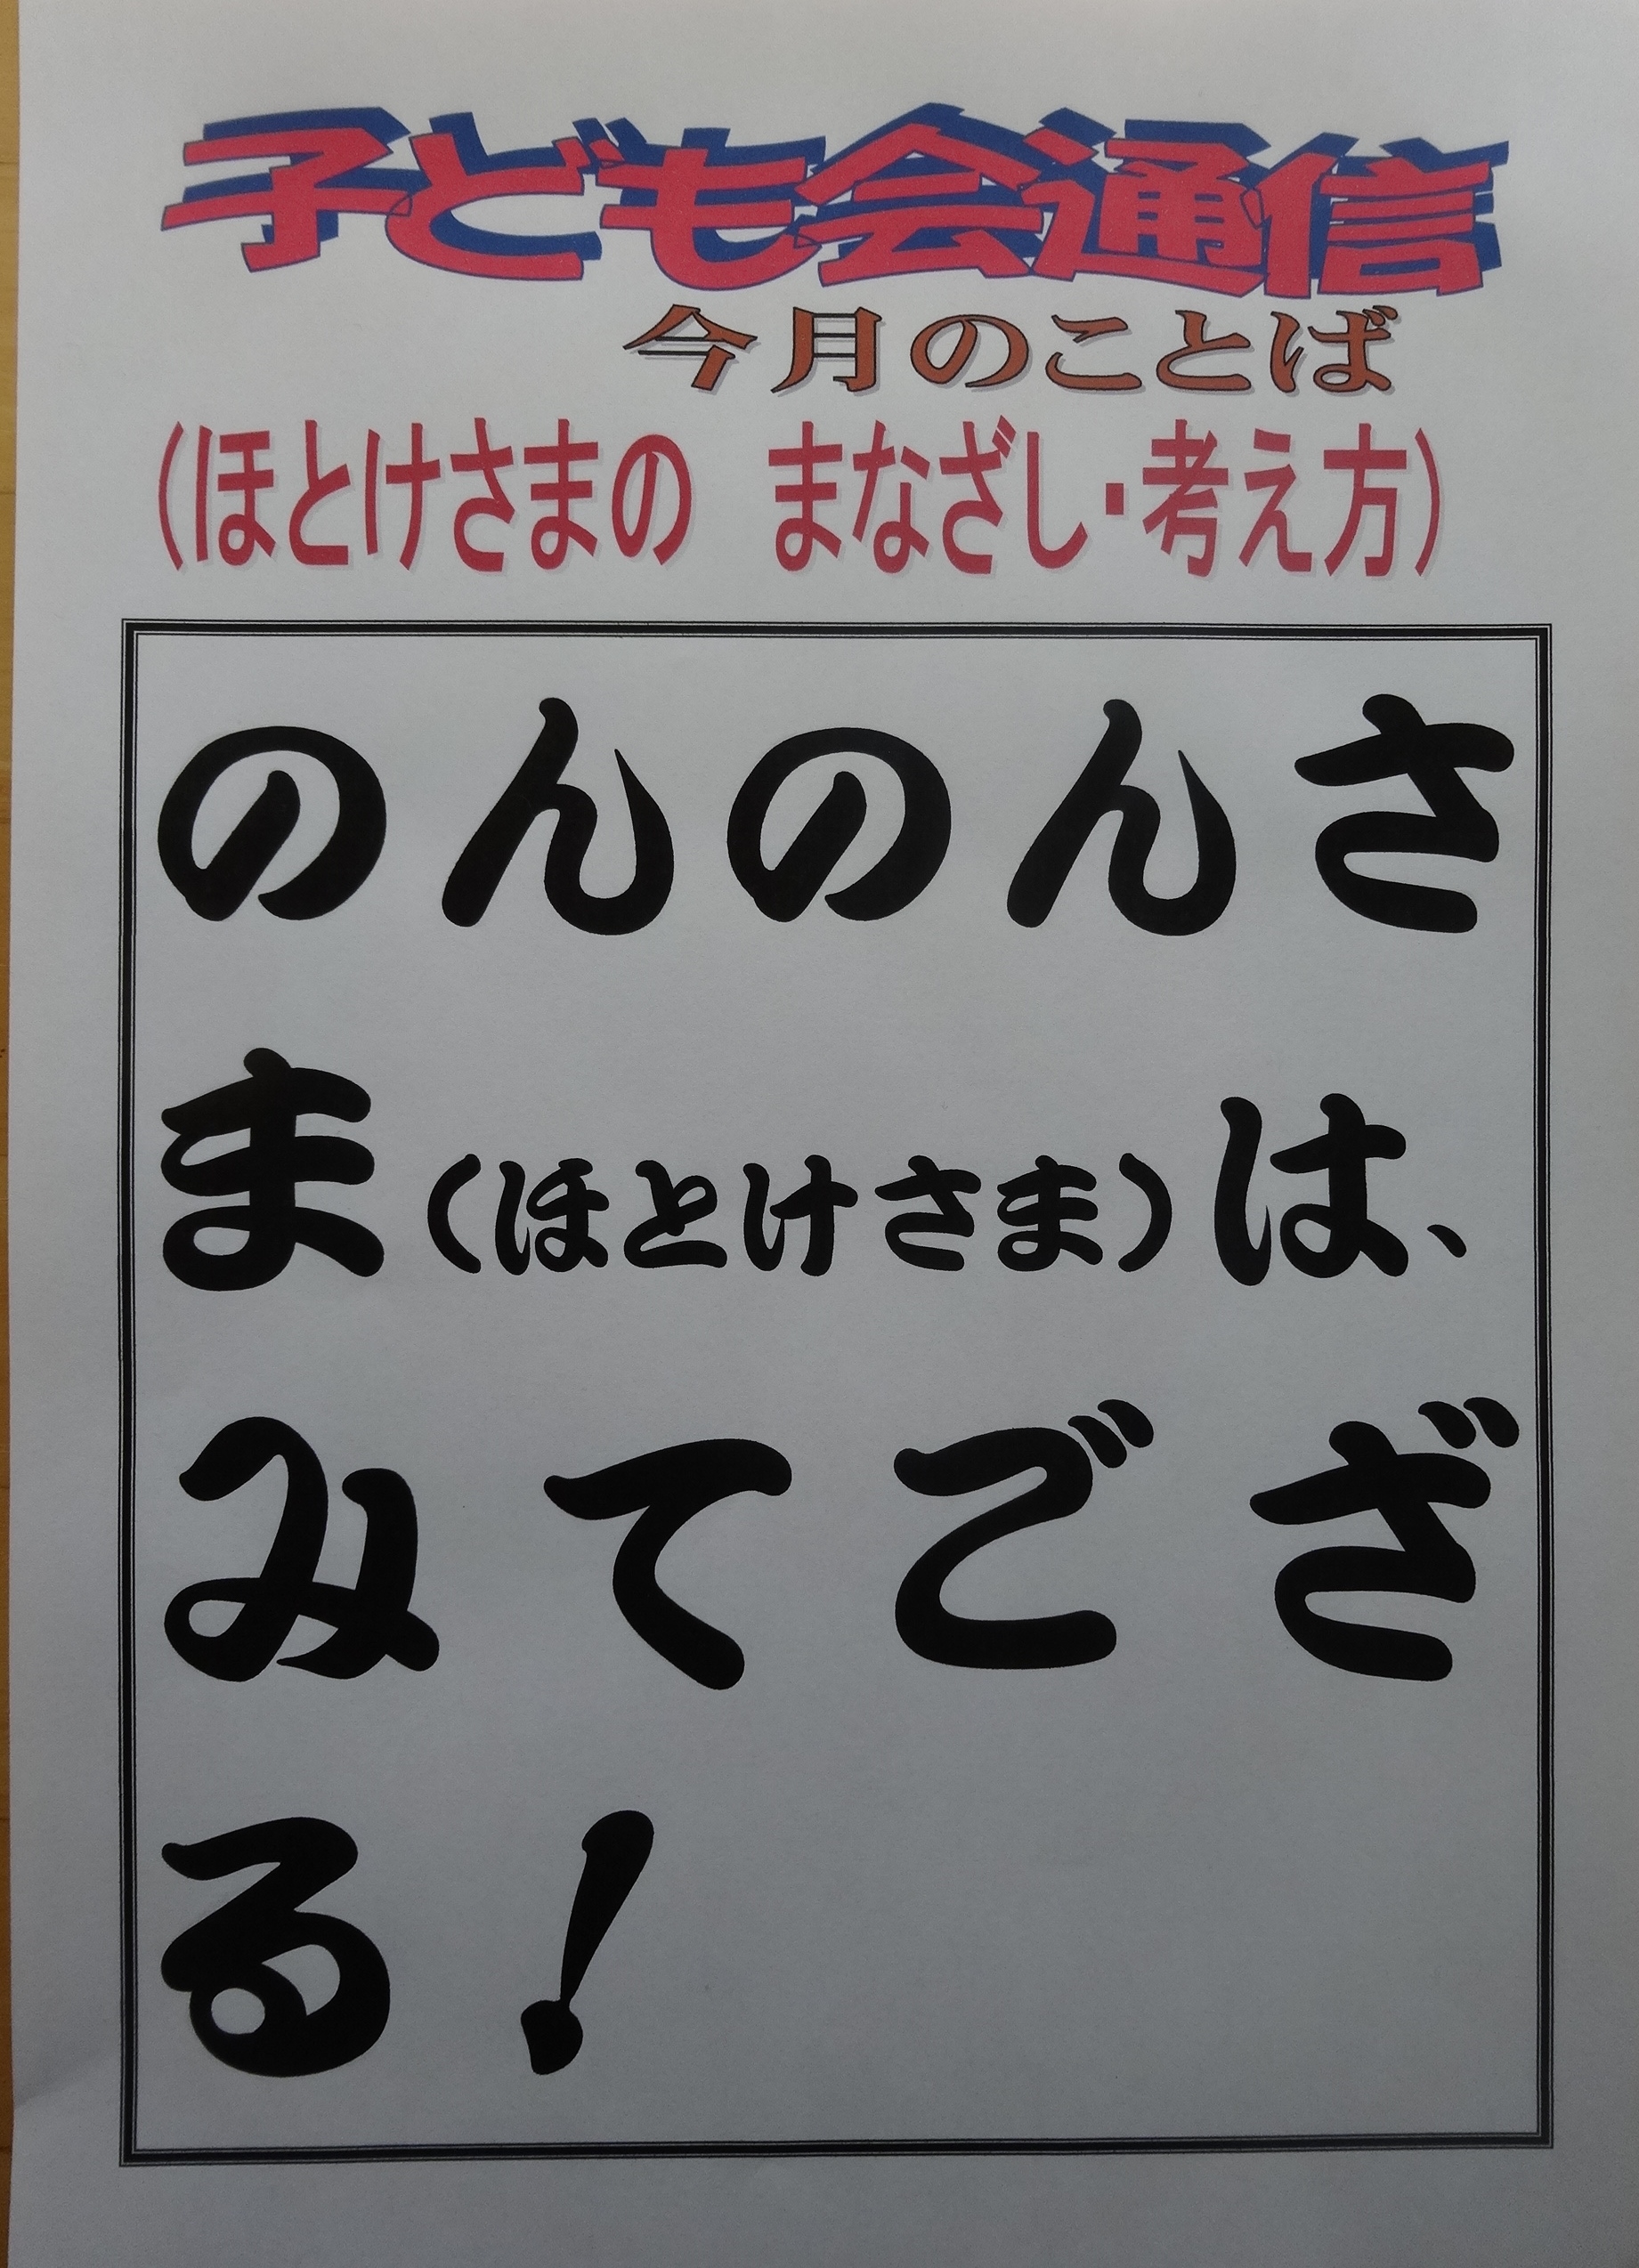 子ども会通信
今月のことば
（ほとけさまの　まなざし・考え方）
のんのんさ
ま（ほとけさま）は、
みてござ
る！